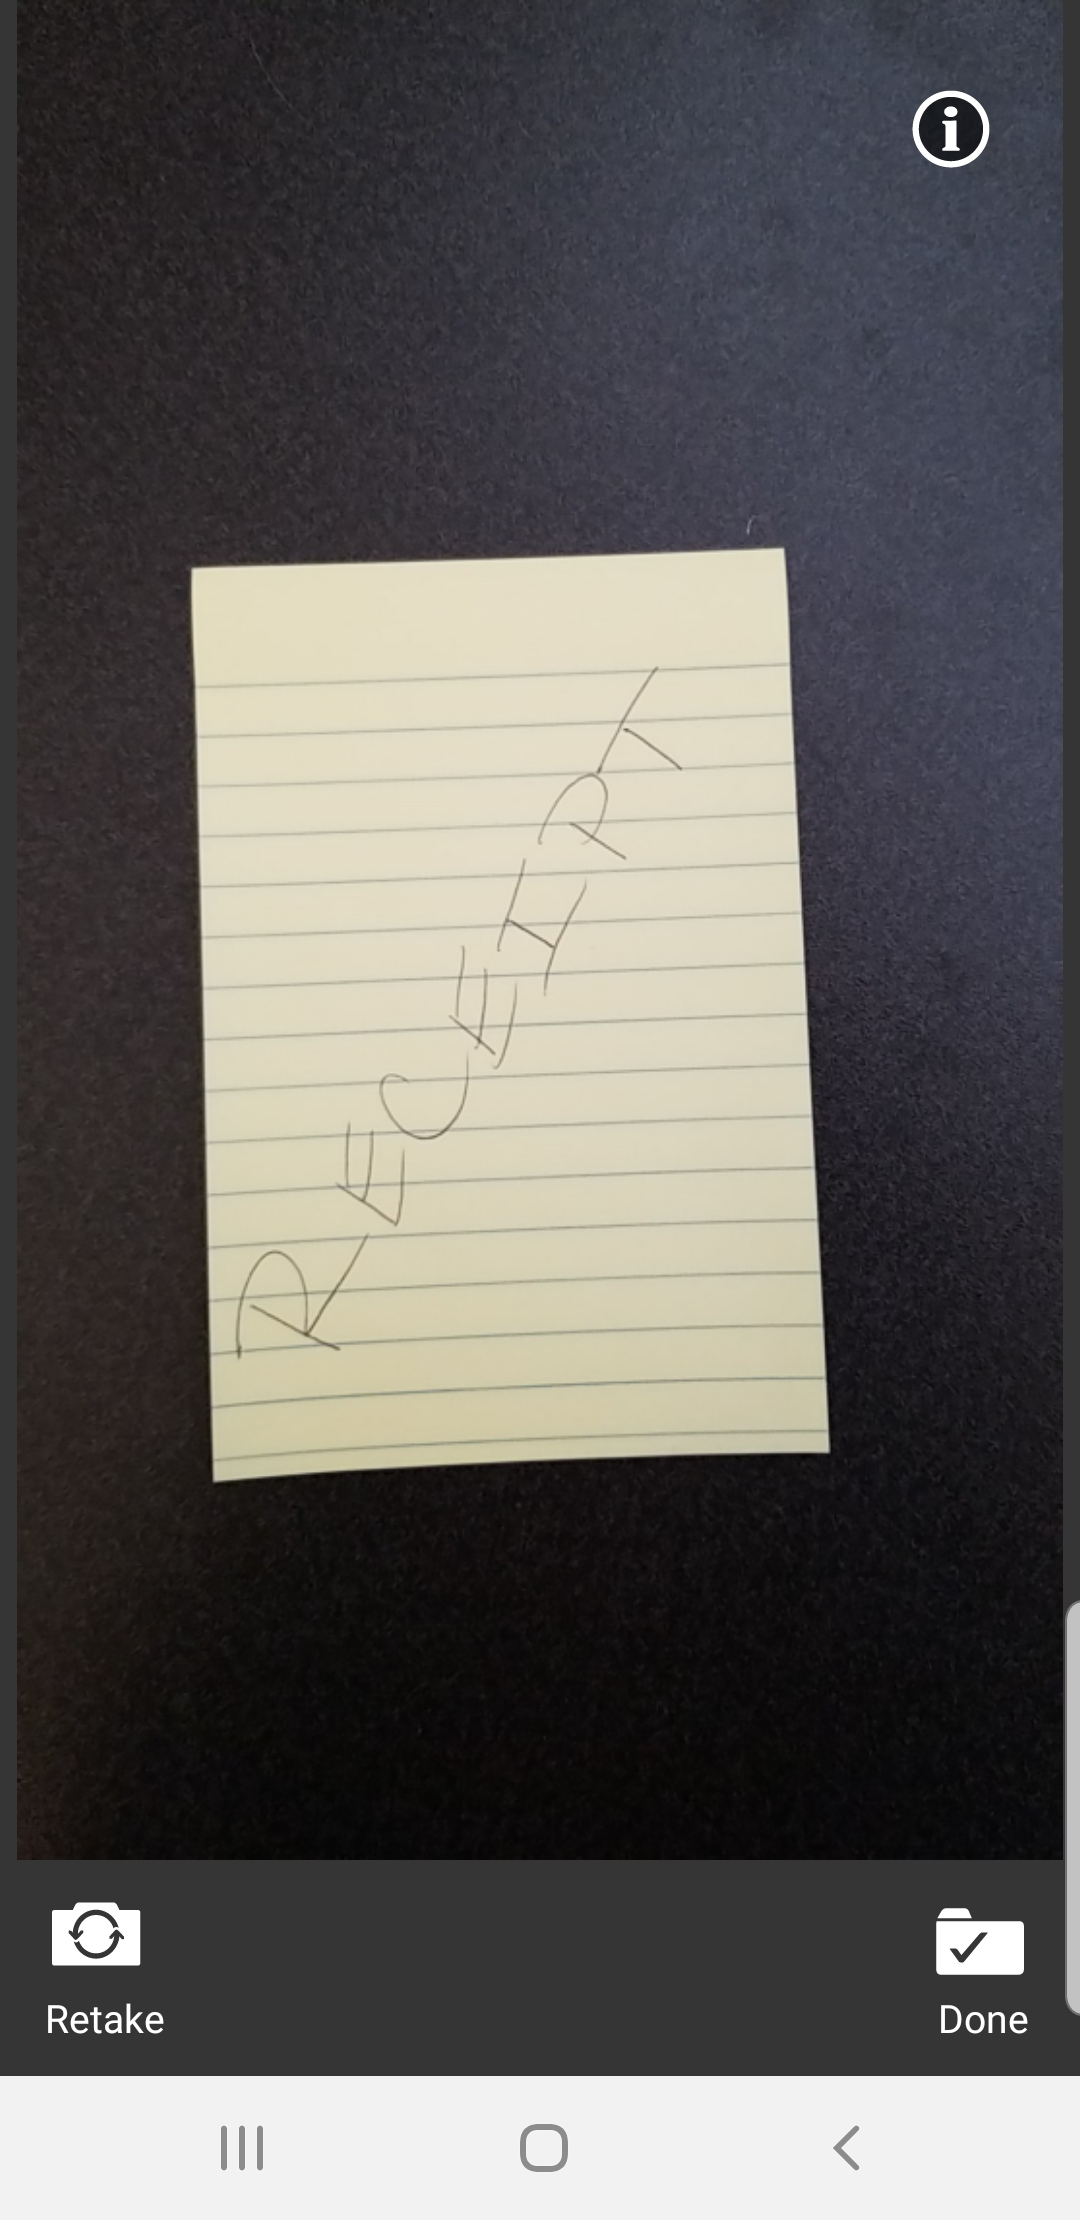 RECEIPT
Retake
Done